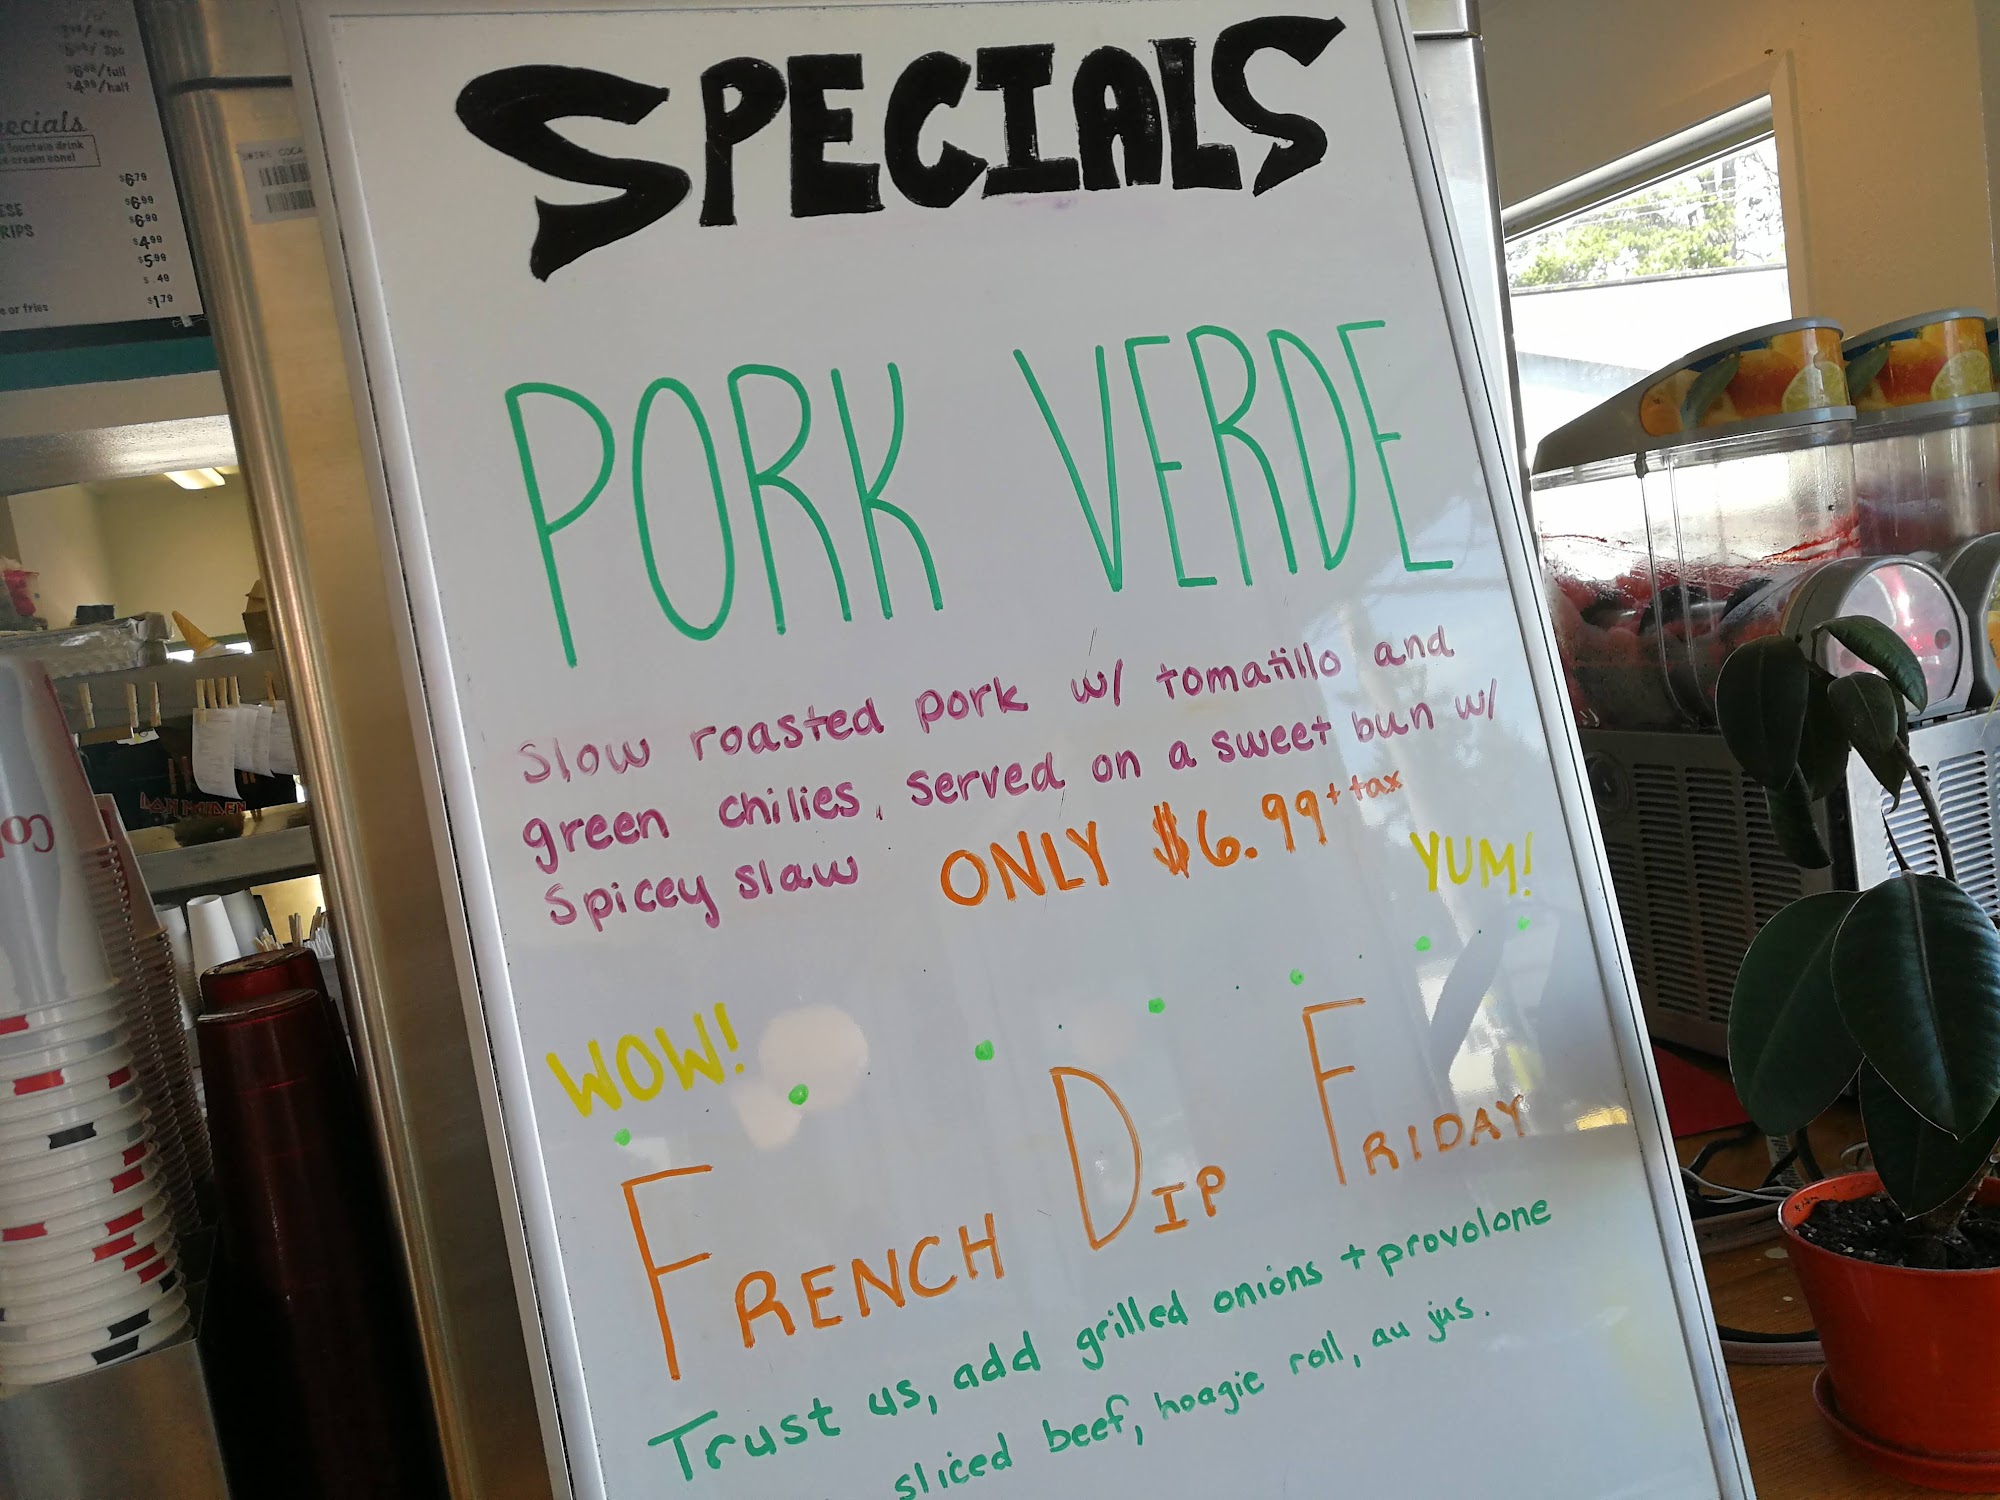 SPECIALS
PORK VERDE
Slow roasted pork w/ tomatillo and
green chilies, served on a sweet bun w/
Spicey slaw ONLY $6.99 + tax
YUM!
WOW!
FRENCH DIP FRIDAY
Trust us, add grilled onions + provolone
sliced beef, hoagie roll, au jus.
$6.99/full
$4.99/half
ecials
fountain drink
cream cone!
$6.79
ESE $6.99
$6.99
RIPS $4.99
$5.99
$.49
e or fries $1.79
IRON MAIDEN